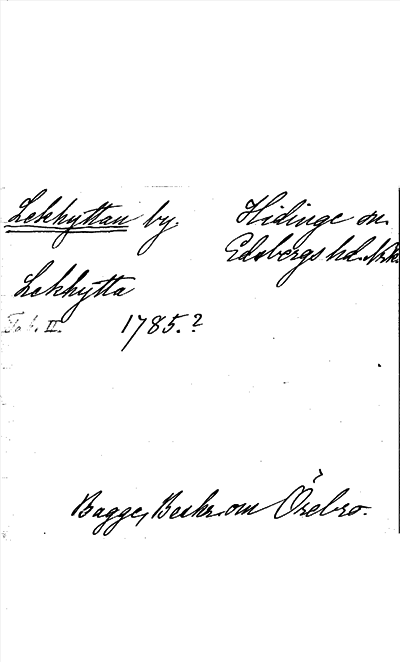 Lekhyttan by. Hidinge sn.
Edsbergs hd.
Lekhytta
Tab. II. 1785.?
Bagge, Beskr. om Örebro.